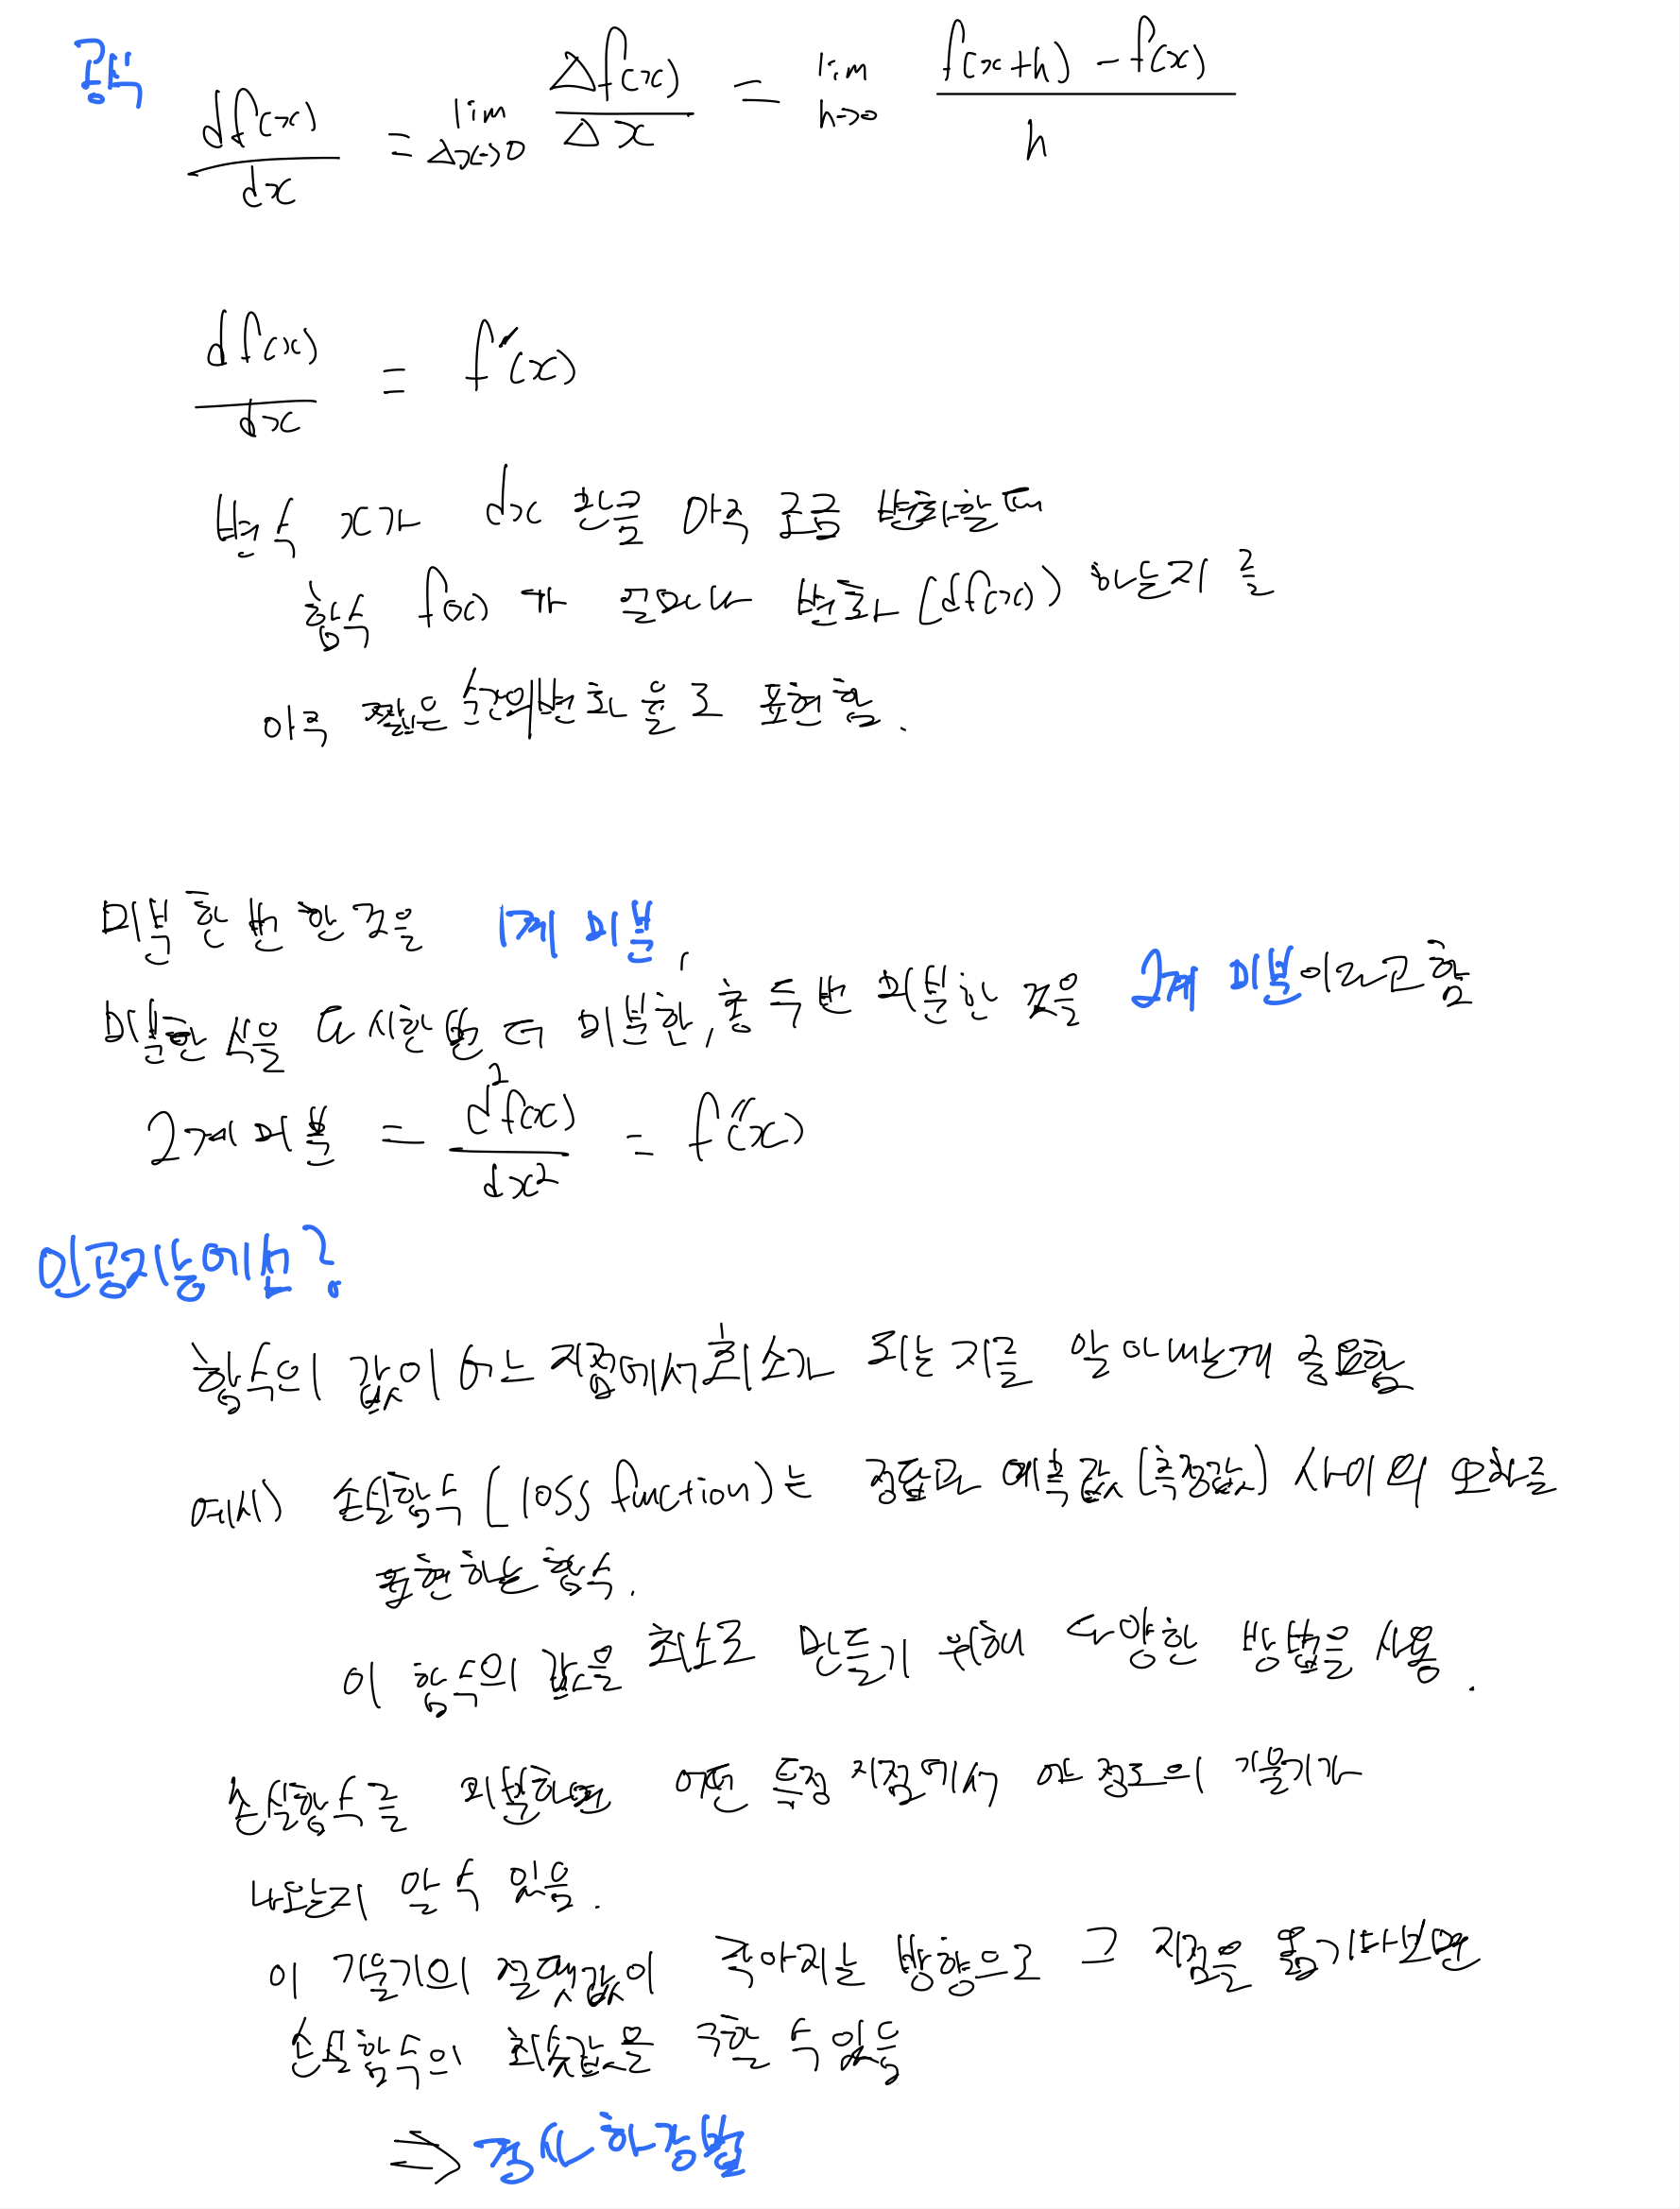 공식
df(x)/dx = lim Δx→0 Δf(x)/Δx = lim h→0 f(x+h) - f(x)/h
df(x)/dx = f'(x)
변수 x가 dx 만큼 아주 조금 변화할때
함수 f(x)가 얼마나 변화(df(x)) 하는지 를
아주 짧은 순간의 변화율로 표현함.
미분 한 번 한 것을 1계 미분,
미분한 식을 다시한번 더 미분한, 총 두 번 미분한 것을 2계 미분이라고 함
2계 미분 = d²f(x)/dx² = f''(x)
인공지능에선?
함수의 값이 어느 지점에서 최소가 되는 지를 알아내는게 중요함
예시) 손실함수(loss function)는 정답과 예측값(측정값) 사이의 오차를
표현하는 함수.
이 함수의 값을 최소로 만들기 위해 다양한 방법을 사용.
손실함수를 미분하면 어떤 특정 지점에서 어느 정도의 기울기가
나오는지 알 수 있음.
이 기울기의 절댓값이 작아지는 방향으로 그 지점을 옮기다보면
손실함수의 최솟값을 구할 수 있음
⇒ 경사하강법